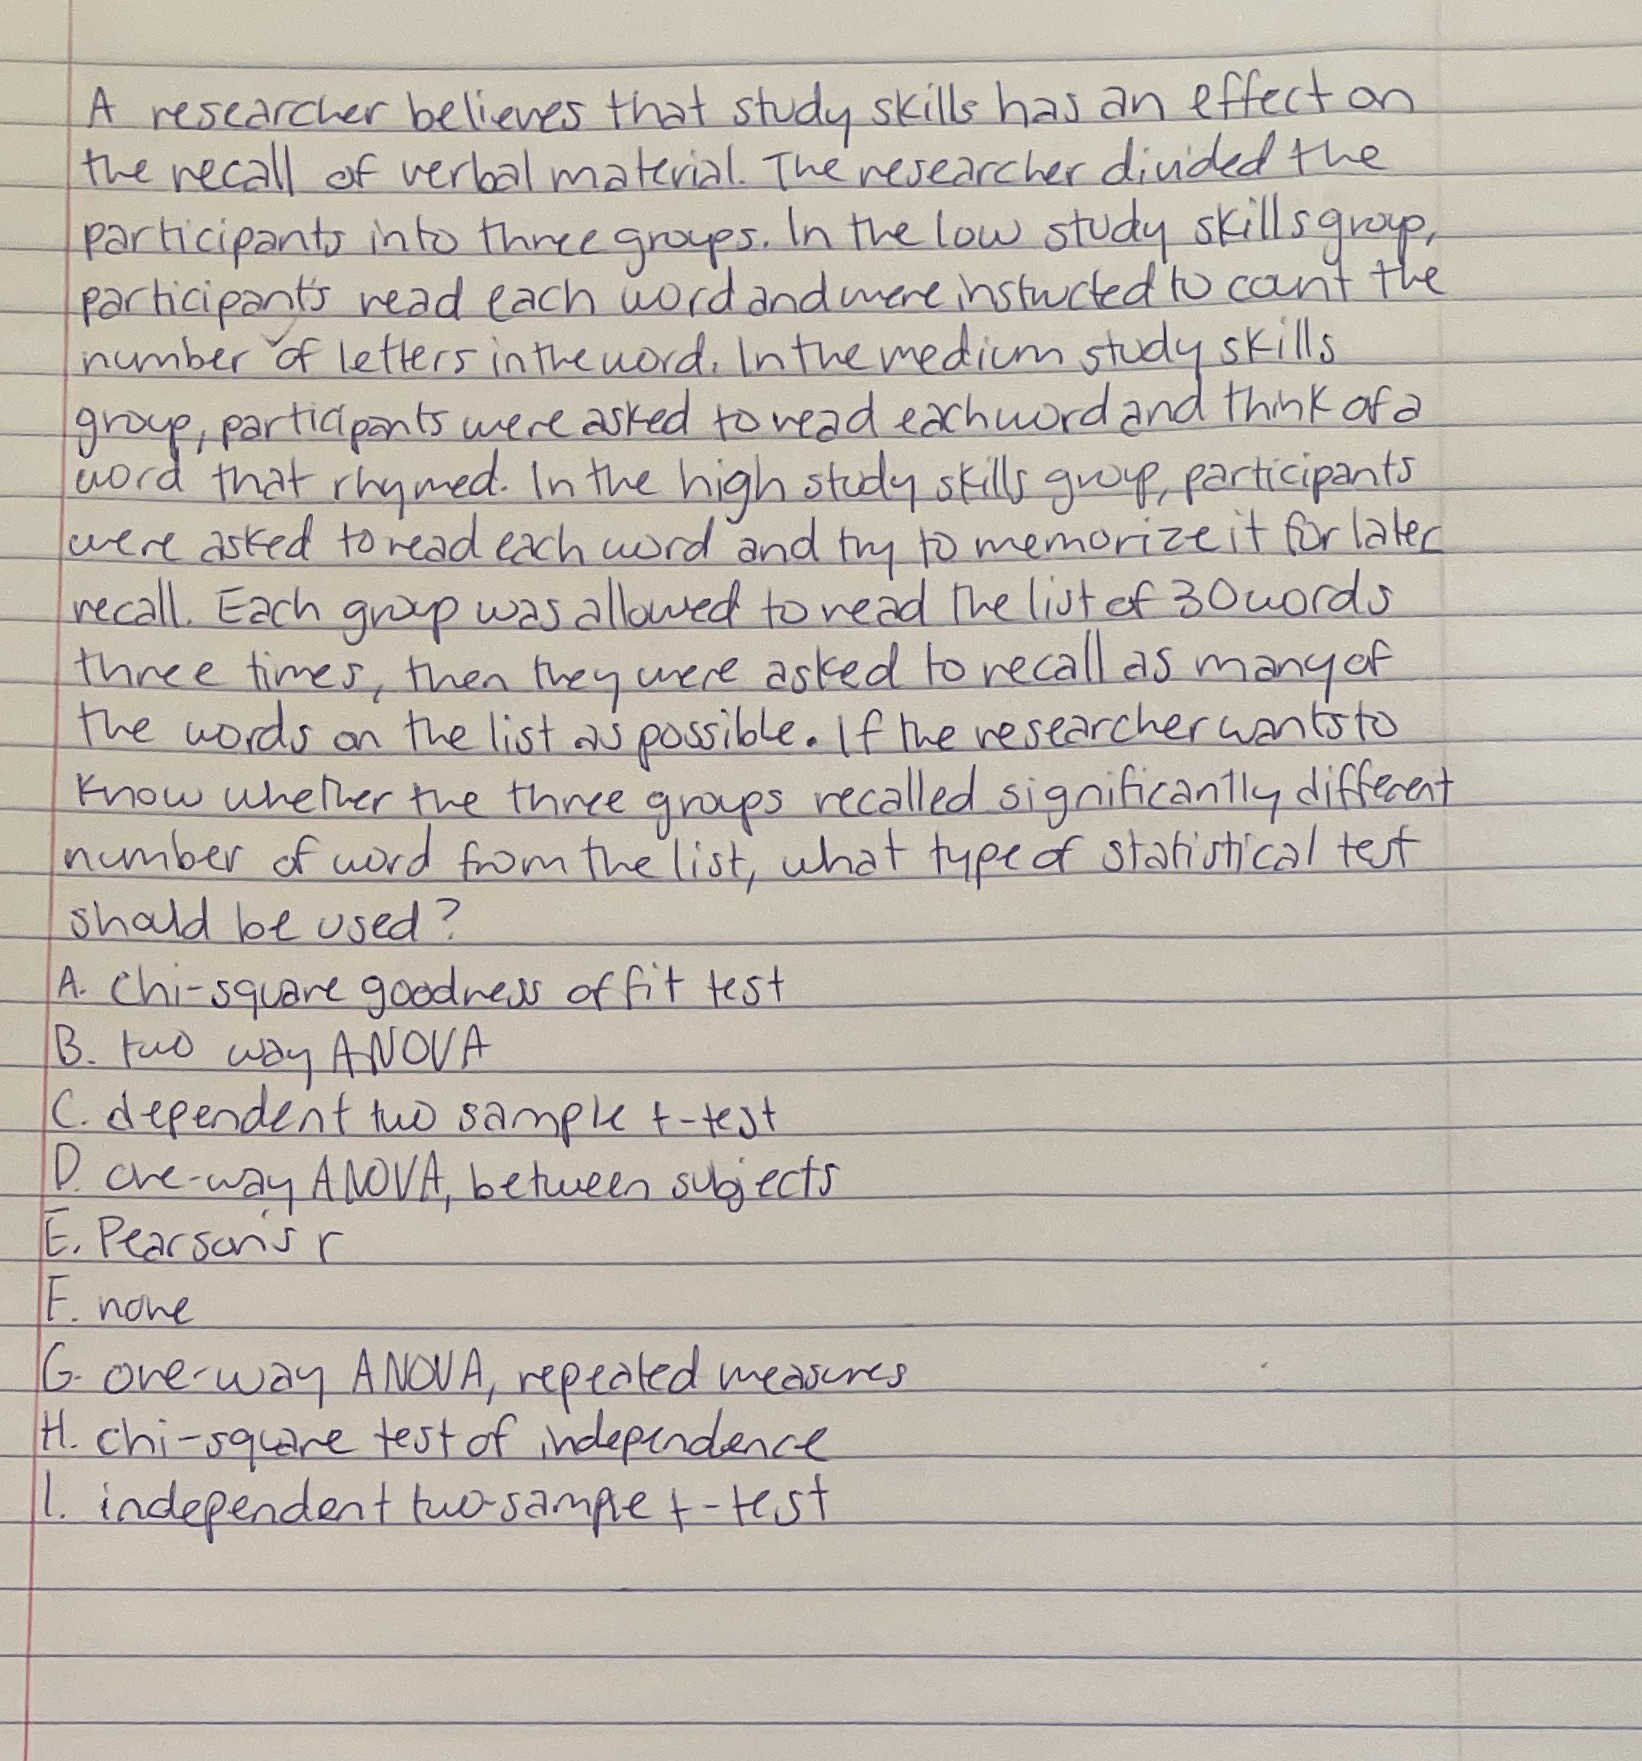 A researcher believes that study skills has an effect on
the recall of verbal material. The researcher divided the
participants into three groups. In the low study skills group,
participants read each word and were instucted to count the
number of letters in the word. In the medium study skills
group, participants were asked to read each word and think of a
word that rhymed. In the high study skills group, participants
were asked to read each word and try to memorize it for later
recall. Each group was allowed to read the list of 30 words
three times, then they were asked to recall as many of
the words on the list as possible. If the researcher wants to
know whether the three groups recalled significantly different
number of word from the list, what type of statistical test
should be used?
A. Chi-square goodness of fit test
B. two way ANOVA
C. dependent two sample t-test
D. one-way ANOVA, between subjects
E. Pearson's r
F. none
G. one-way ANOVA, repeated measures
H. chi-square test of independence
I. independent two-sample t-test